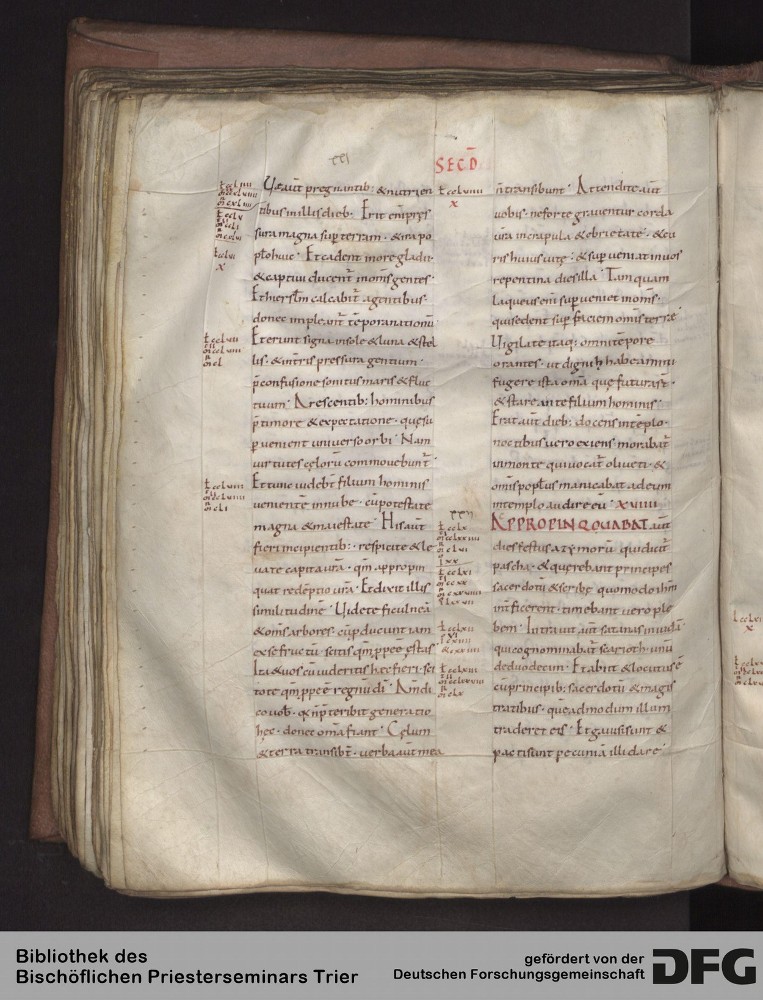 SECD̄
Ue aut̄ pregnantib: & nutrien
tibus in illis dieb· Erit enī pres
sura magna sup terram· & ira po
pl̄o huic· Et cadent in ore gladii·
& captiui ducent̄ in oms̄ gentes·
Et hierslm̄ calcabit̄ a gentibus·
donec impleant̄ tēpora nationū
Et erunt signa in sole & luna & stel
lis· & in tr̄is pressura gentium·
p̄ confusione sonitus maris & fluc
tuum· Arescentib: hominibus
p̄ timore & expectatione· que su
peruenient uniuerso orbi· Nam
uirtutes cęlorū commouebunt̄·
Et tunc uidebt̄ filium hominis
uenientē in nube· cū potestate
magna & maiestate· His aut̄
fieri incipientib:· respicite & le
uate capita ur̄a· qm̄ appropin
quat redēptio ur̄a· Et dixit illis
similitudinē· Uidete ficulneā
& oms̄ arbores· cū p̄ducunt iam
ex se fructū· scitis qm̄ p̄pe ē ęstas·
Ita & uos cū uideritis hęc fieri· sci
tote qm̄ p̄pe ē regnū dī· Am̄ di
co uob̄· q̄ n̄ p̄teribit generatio
hęc· donec om̄a fiant· Cęlum
& terra transibt̄· uerba aut̄ mea
n̄ transibunt· Attendite aut̄
uobis· ne forte grauentur corda
ur̄a in crapula & ebrietate· & cu
ris huius uitę· & sup ueniat in uos
repentina dies illa· Tamquam
laqueus enī sup ueniet in oms̄·
qui sedent sup faciem omīs terrę
Uigilate itaq: omni tēpore
orantes· ut digni habeamini
fugere ista om̄a que futura st̄·
& stare ante filium hominis·
Erat aut̄ dieb: docens in tēplo·
noctibus uero exiens morabat̄
in monte qui uocat̄ oliueti· &
omīs popl̄us manicabat ad eum
in templo audire eū· XVIIII
APPROPINQUABAT aut̄
dies festus azymorū qui dicit̄
pascha· & querebant principes
sacerdotū & scribę quomodo ihm̄
int̄ficerent· timebant uero ple
bem· Intrauit aut̄ satanas in iudā·
qui cognominabat̄ scarioth· unū
de duodecim· Et abiit & locutus ē
cū principib: sacerdotū & magis
tratibus· quę admodum illum
traderet eis· Et gauisi sunt &
pacti sunt pecuniā illi dare·
Bibliothek des
Bischöflichen Priesterseminars Trier
gefördert von der
Deutschen Forschungsgemeinschaft
DFG